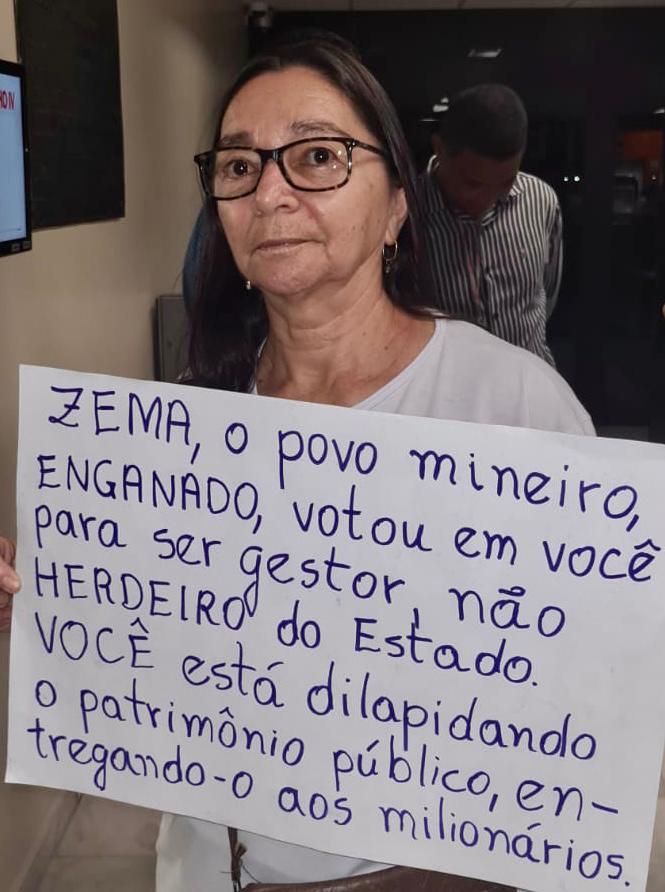 ZEMA, o povo mineiro,
ENGANADO, votou em você
para ser gestor, não
HERDEIRO do Estado.
VOCÊ está dilapidando
o patrimônio público, en-
tregando-o aos milionários.